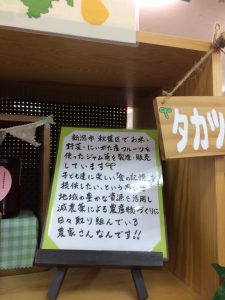 新潟市 秋葉区でお米・
野菜・にいがた産フルーツを
使ったジャム等を製造・販売
しています
子ども達に楽しい「食の記憶」を
提供したい、という
地域の豊かな資源を活用し
減農薬による農産物づくりに
日々取り組んでいる
農家さんなんです!!
タカツ